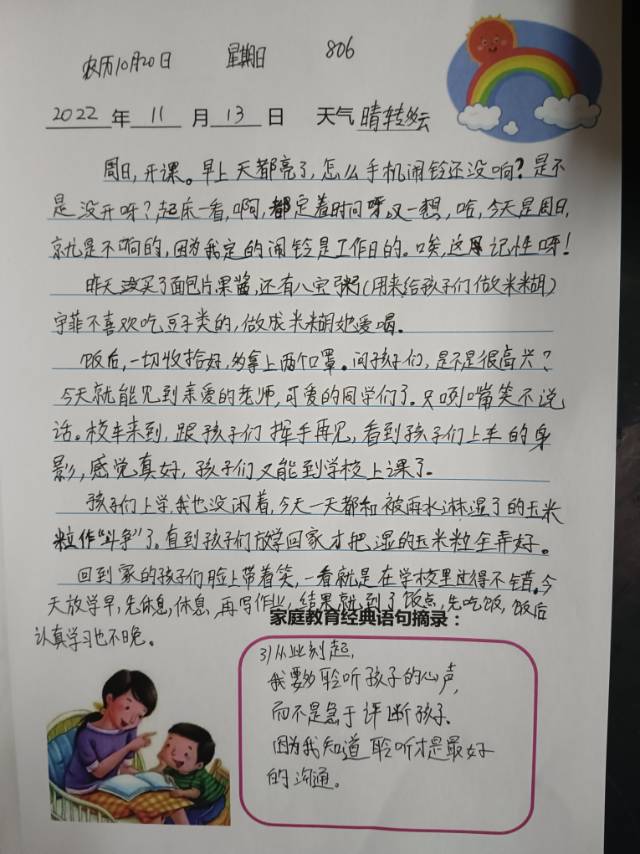 农历10月20日 星期日 806
2022 年 11 月 13 日 天气 晴转多云
周日,开课。早上天都亮了,怎么手机闹铃还没响?是不
是没开呀?起床一看,啊,都定着时间呀,又一想,哈,今天是周日,
就是不响的,因为我定的闹铃是工作日的。唉,这记性呀!
昨天买了面包片,果酱,还有八宝粥(用来给孩子们做米糊)
宇菲不喜欢吃豆子类的,做成米糊她爱喝.
饭后,一切收拾好,多拿上两个口罩。问孩子们,是不是很高兴?
今天就能见到亲爱的老师,可爱的同学们了。只咧嘴笑不说
话。校车来到,跟孩子们挥手再见,看到孩子们上车的身
影,感觉真好,孩子们又能到学校上课了.
孩子们上学,我也没闲着,今天一天都和被雨水淋湿了的玉米
粒作“斗争”了。直到孩子们放学回家才把湿的玉米粒全弄好。
回到家的孩子们脸上带着笑,一看就是在学校里过得不错。今
天放学早,先休息,休息,再写作业,结果就到了饭点,先吃饭,饭后
认真学习也不晚。
家庭教育经典语句摘录:
3)从此刻起,
我要多聆听孩子的心声,
而不是急于评断孩子.
因为我知道聆听才是最好
的沟通。